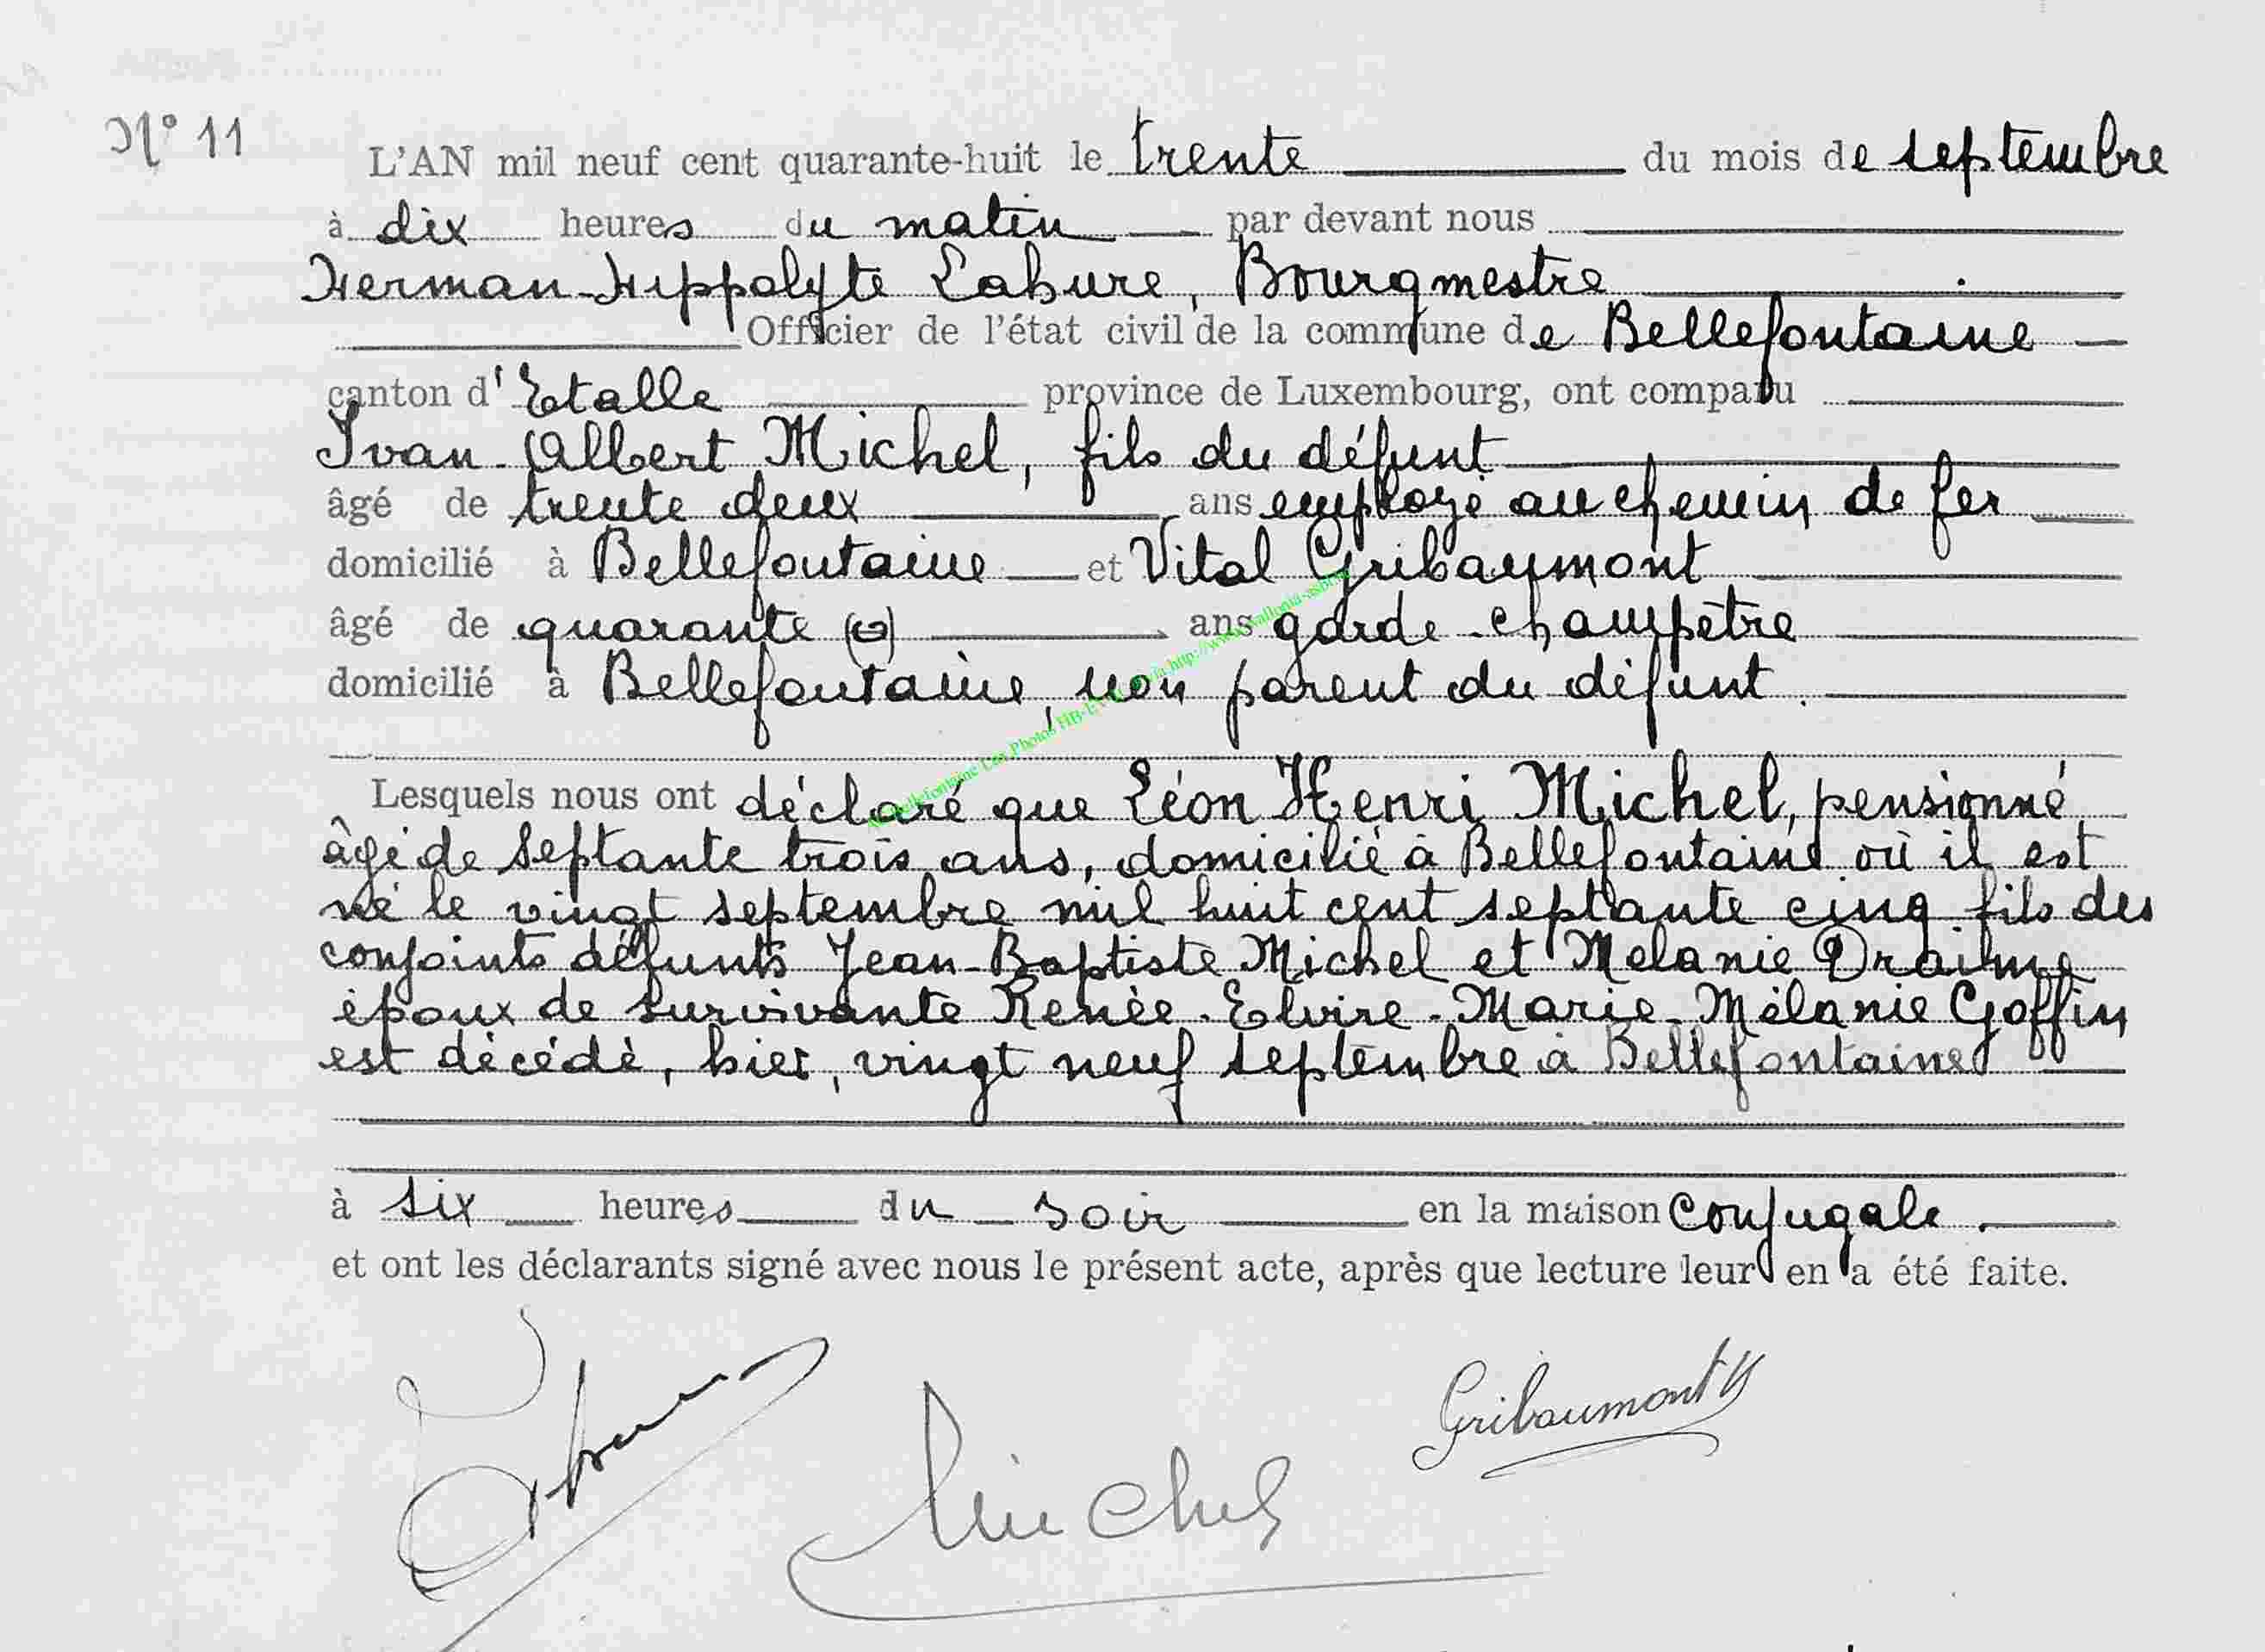 N° 11
L'AN mil neuf cent quarante-huit le trente du mois de septembre
à dix heures du matin par devant nous
Herman-Hippolyte Lahure, Bourgmestre
Officier de l'état civil de la commune de Bellefontaine
canton d'Etalle province de Luxembourg, ont comparu
Ivan-Albert Michel, fils du défunt
âgé de trente deux ans employé au chemin de fer
domicilié à Bellefontaine et Vital Gribaumont
âgé de quarante ans garde-champêtre
domicilié à Bellefontaine, non parent du défunt.
Lesquels nous ont déclaré que Léon Henri Michel, pensionné,
âgé de septante trois ans, domicilié à Bellefontaine où il est
né le vingt septembre mil huit cent septante cinq fils des
conjoints défunts Jean-Baptiste Michel et Melanie Draime
époux de survivante Renée-Elvire-Marie-Mélanie Goffin
est décédé, hier, vingt neuf septembre à Bellefontaine
à six heures du soir en la maison conjugale.
et ont les déclarants signé avec nous le présent acte, après que lecture leur en a été faite.
Gribaumont V
Michel